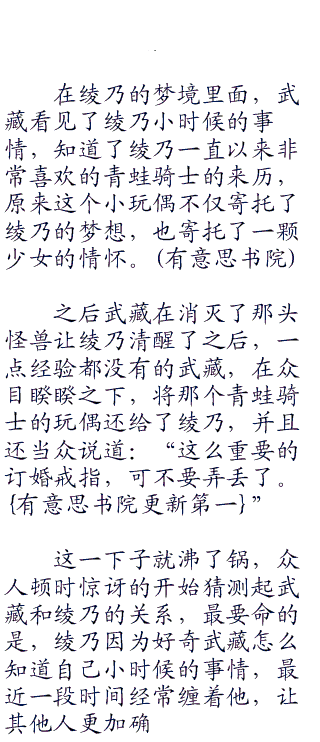 在绫乃的梦境里面，武
藏看见了绫乃小时候的事
情，知道了绫乃一直以来非
常喜欢的青蛙骑士的来历，
原来这个小玩偶不仅寄托了
绫乃的梦想，也寄托了一颗
少女的情怀。(有意思书院)
之后武藏在消灭了那头
怪兽让绫乃清醒了之后，一
点经验都没有的武藏，在众
目睽睽之下，将那个青蛙骑
士的玩偶还给了绫乃，并且
还当众说道：“这么重要的
订婚戒指，可不要弄丢了。
{有意思书院更新第一}”
这一下子就沸了锅，众
人顿时惊讶的开始猜测起武
藏和绫乃的关系，最要命的
是，绫乃因为好奇武藏怎么
知道自己小时候的事情，最
近一段时间经常缠着他，让
其他人更加确